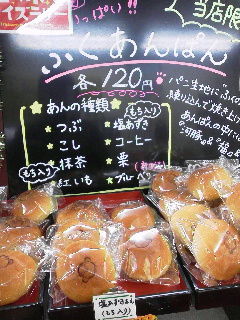 イズミー
っぱい!!
当店限
ふくあんぱん
各120円
パン生地に"ふくの
練り込んで焼き上げ
あんぱんの
"河豚"
★あんの種類★
もち入り
つぶ
塩あずき
こし
コーヒー
抹茶
栗
もち入り
紅いも
ブルーベリー
塩あずきあん
(もち入り)